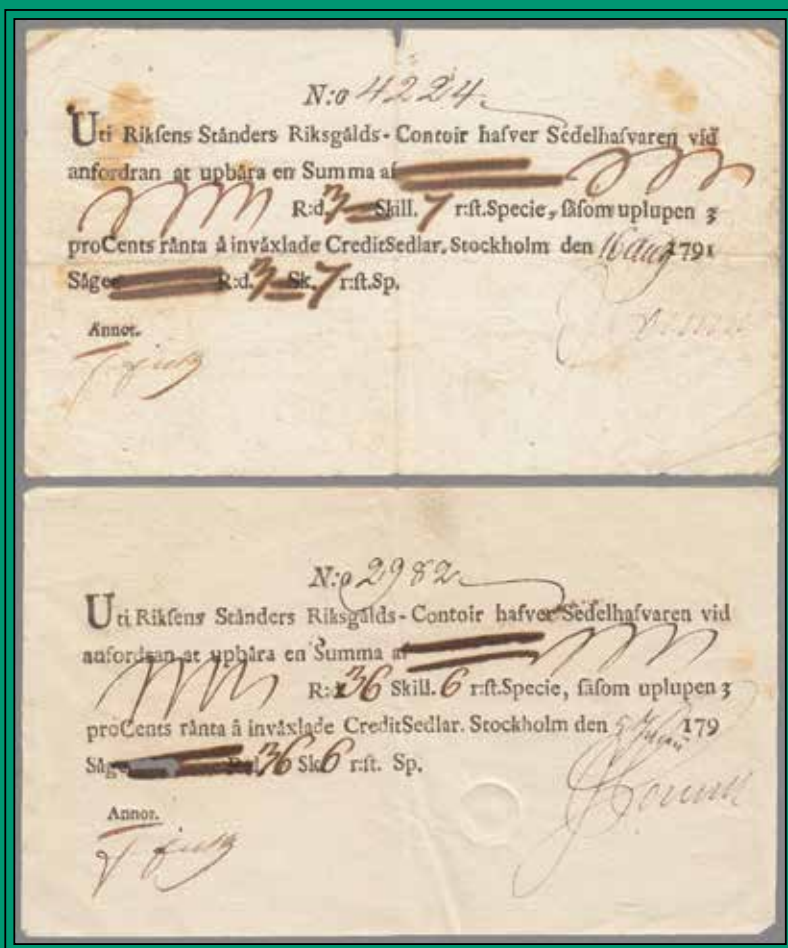 N:o 4224
Uti Riksens Ständers Riksgälds-Contoir hafver Sedelhafvaren vid
anfordran at upbära en Summa af
R:d. 3 Skill. 7 r:ſt. Specie, ſåſom uplupen 3
proCents ränta å inväxlade CreditSedlar. Stockholm den 16 aug 1791
Säger R:d. 3 Sk. 7 r:ſt. Sp.
Annot.
N:o 2982
Uti Rikſens Ständers Riksgälds-Contoir hafver Sedelhafvaren vid
anfordran at upbära en Summa af
R:d 36 Skill. 6 r:ſt. Specie, ſåſom uplupen 3
proCents ränta å inväxlade CreditSedlar. Stockholm den 179
Säger 36 Sk 6 r:ſt. Sp.
Annot.